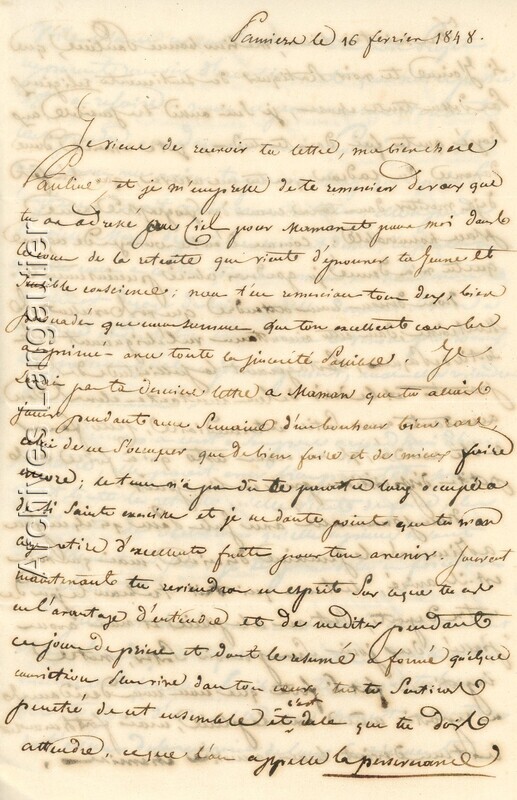 Pamiers le 16 fevrier 1848.
Je viens de recevoir ta lettre, ma bien chere
Pauline, et je m'empresse de te remercier des vœux que
tu as adressé au Ciel pour Maman et pour moi dans
le cours de la retraite qui vient d'épouver ta jeune et
sensible conscience ; nous t'en remercions tous deux, bien
persuadés que nous sommes, que ton excellent cœur les a
exprimés avec toute la sincerité possible. Je
savais par ta derniere lettre a Maman que tu allais
jouir pendant une Semaine d'un bonheur bien rare,
celui de ne s'occuper que de bien faire et de mieux faire
encore ; le tems n'a pas du te paraitre long occupée a
de si Saints exercice et je ne doute point que tu n'en
aies retiré d'excellents fruits pour ton avenir. Souvent
maintenant tu reviendras en esprit Sur ce que tu as
eu l'avantage d'entendre et de mediter pendant
ces jours de priere et dont le resumé a formé quelque
conviction dans ton cœur tu te Sentiras
penetré de cet ensemble et c'est de la que tu dois
attendre, ce que l'on appelle la perseverance
Archives-Lengautier